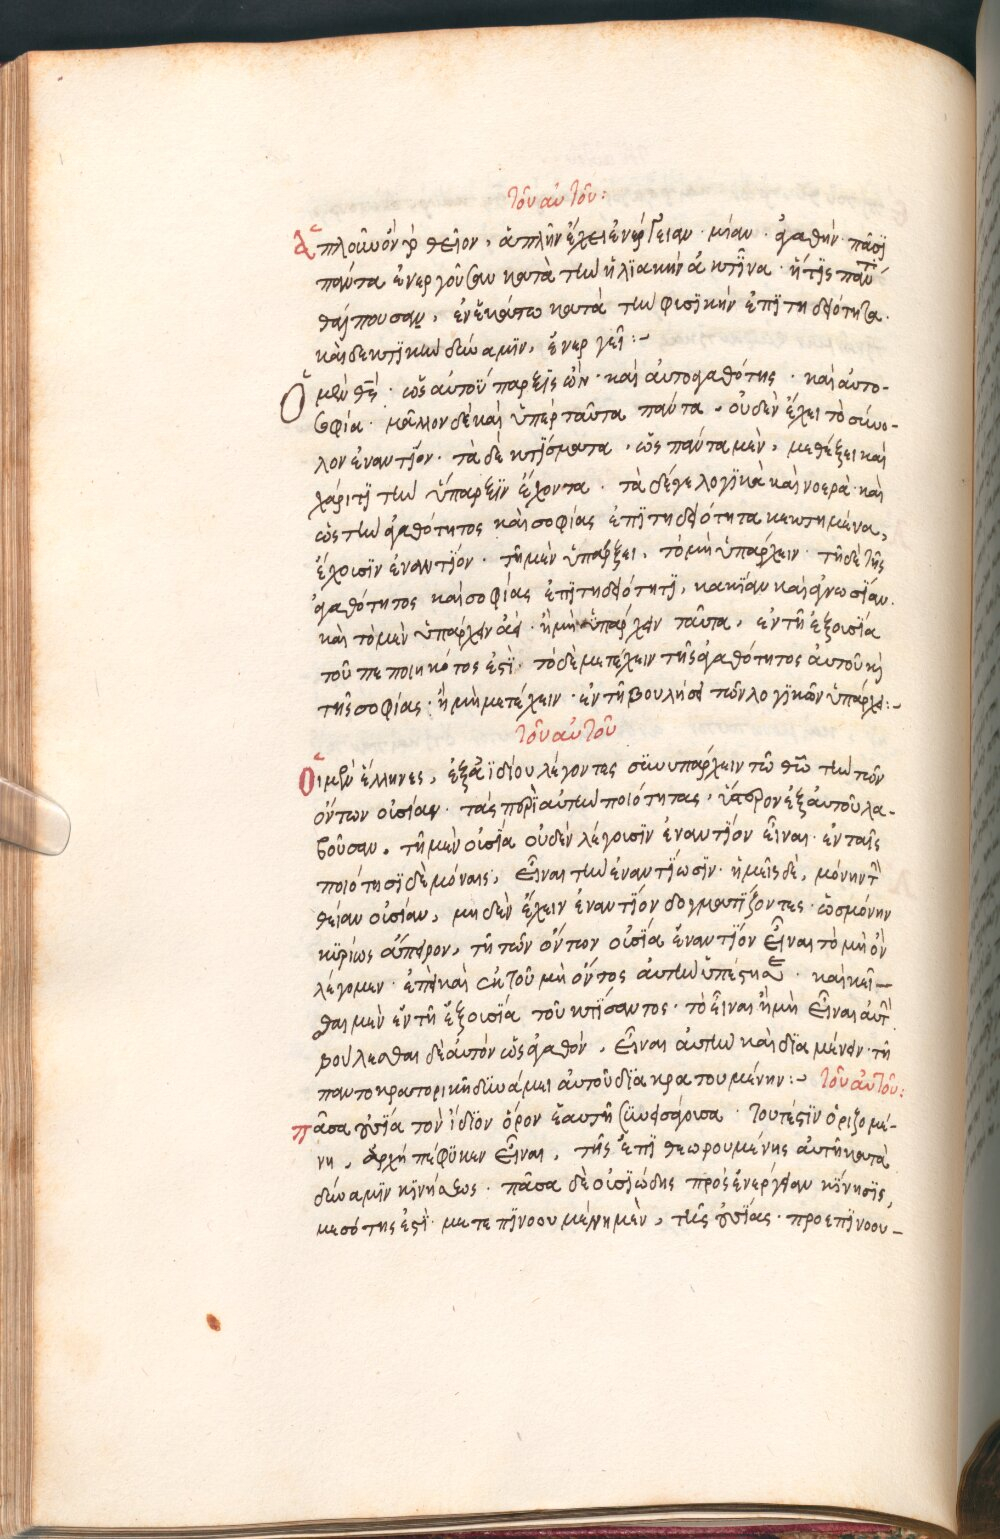 τοῦ αὐτοῦ:
Ἁπλοῦν ὂν τὸ θεῖον, ἁπλὴν ἔχει ἐνέργειαν · μίαν · ἀγαθήν · πᾶσι
πάντα ἐνεργοῦσαν κατὰ τὴν ἡλϊακὴν ἀκτῖνα · ἥτις πάντα
θάλπουσα, ἐν ἑκάστω κατὰ τὴν φισϊκὴν ἐπιτηδειότητα ·
καὶ δεκτϊκὴν δύναμϊν, ἐνεργεῖ :~
Ὁ μὲν θεὸς · ὡς αὐτοΰπαρξις ὢν · καὶ αὐτοαγαθότης · καὶ αὐτο-
σοφία · μᾶλλον δὲ καὶ ὑπὲρ ταῦτα πάντα · οὐδὲν ἔχει τὸ σύνο-
λον ἐναντίον · τὰ δὲ κτίσματα, ὡς πάντα μὲν, μεθέξει καὶ
χάριτϊ τὴν ὕπαρξϊν ἔχοντα · τὰ δέ γε λογϊκὰ καὶ νοερὰ καὶ
ὡς τὴν ἀγαθότητος καὶ σοφίας ἐπϊτηδειότητα κεκτημένα,
ἔχοισϊν ἐναντϊόν · τῆ μὲν ὑπάρξει, τὸ μὴ ὑπάρχειν · τῆ δὲ τῆς
ἀγαθότητος καὶ σοφίας ἐπϊτηδειότητϊ, κακΐαν καὶ ἀγνωσΐαν ·
καὶ τὸ μὲν ὑπάρχειν ἀεὶ · ἢ μὴ ὑπάρχειν ταῦτα, ἐν τῆ ἐξοισΐα
τοῦ πεποιηκότος ἐστὶ · τὸ δὲ μετέχειν τῆς ἀγαθότητος αὐτοῦ καὶ
τῆς σοφίας · ἢ μὴ μετέχειν · ἐν τῆ βουλήσει τῶν λογϊκῶν ὑπάρχει :~
τοῦ αὐτοῦ
Οἱ μὲν ἕλληνες, ἐξ ἀϊδίου λέγοντες συνυπάρχειν τῶ θεῶ τὴν τῶν
ὄντων οἰσίαν · τὰς περὶ αὐτὴν ποιότητας, ὕστερον ἐξ αὐτοῦ λα-
βοῦσαν · τῆ μὲν οἰσία οὐδὲν λέγοισϊν ἐναντϊόν εἶναι · ἐν ταῖς
ποιότησϊ δὲ μόναις, εἶναι τὴν ἐναντΐωσϊν · ἡμεῖς δὲ, μόνην τὴν
θείαν οἰσίαν, μηδὲν ἔχειν ἐναντϊόν δογματΐζοντες · ὡς μόνην
κϋρίως ἄπειρον, τῆ τῶν ὄντων οἰσία ἐναντϊόν εἶναι τὸ μὴ ὂν
λέγομεν · ἐπεὶ καὶ ἐκ τοῦ μὴ ὄντος αὐτὴν ὑπέστησε · καὶ κεῖ-
σθαι μὲν ἐν τῆ ἐξοισία τοῦ κτΐσαντος · τὸ εἶναι ἢ μὴ εἶναι αὐτὴν
βούλεσθαι δὲ αὐτὸν ὡς ἀγαθὸν, εἶναι αὐτὴν καὶ δϊαμένειν · τῆ
παντοκρατορικῆ δϋνάμει αὐτοῦ δϊακρατουμένην :~ τοῦ αὐτοῦ:
πᾶσα οὐσΐα τὸν ἴδϊον ὅρον ἑαυτῆ συνεισάγοισα · τουτέστϊν ὁριζομέ-
νη, ἀρχή πέφϋκεν εἶναι, τῆς ἐπϊθεωρουμένης αὐτῆ κατὰ
δύναμϊν κϊνήσεως · πᾶσα δὲ οἰσϊώδης πρὸς ἐνέργειαν κΐνησϊς,
μεσότης ἐστὶ · μετεπϊνοουμένη μὲν, τῆς οὐσΐας · προεπϊνοου-